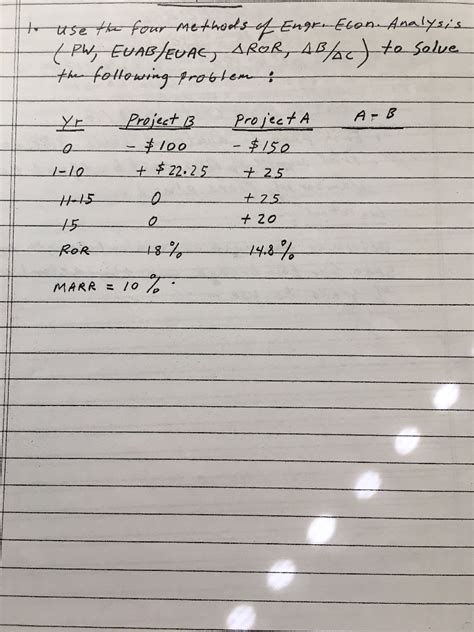 1. Use the four methods of Engr. Econ. Analysis
(PW, EUAB/EUAC, ΔROR, ΔB/ΔC) to solve
the following problem :
Yr Project B Project A A - B
0 - $100 - $150
1-10 + $22.25 + 25
11-15 0 + 25
15 0 + 20
ROR 18% 14.8%
MARR = 10%.